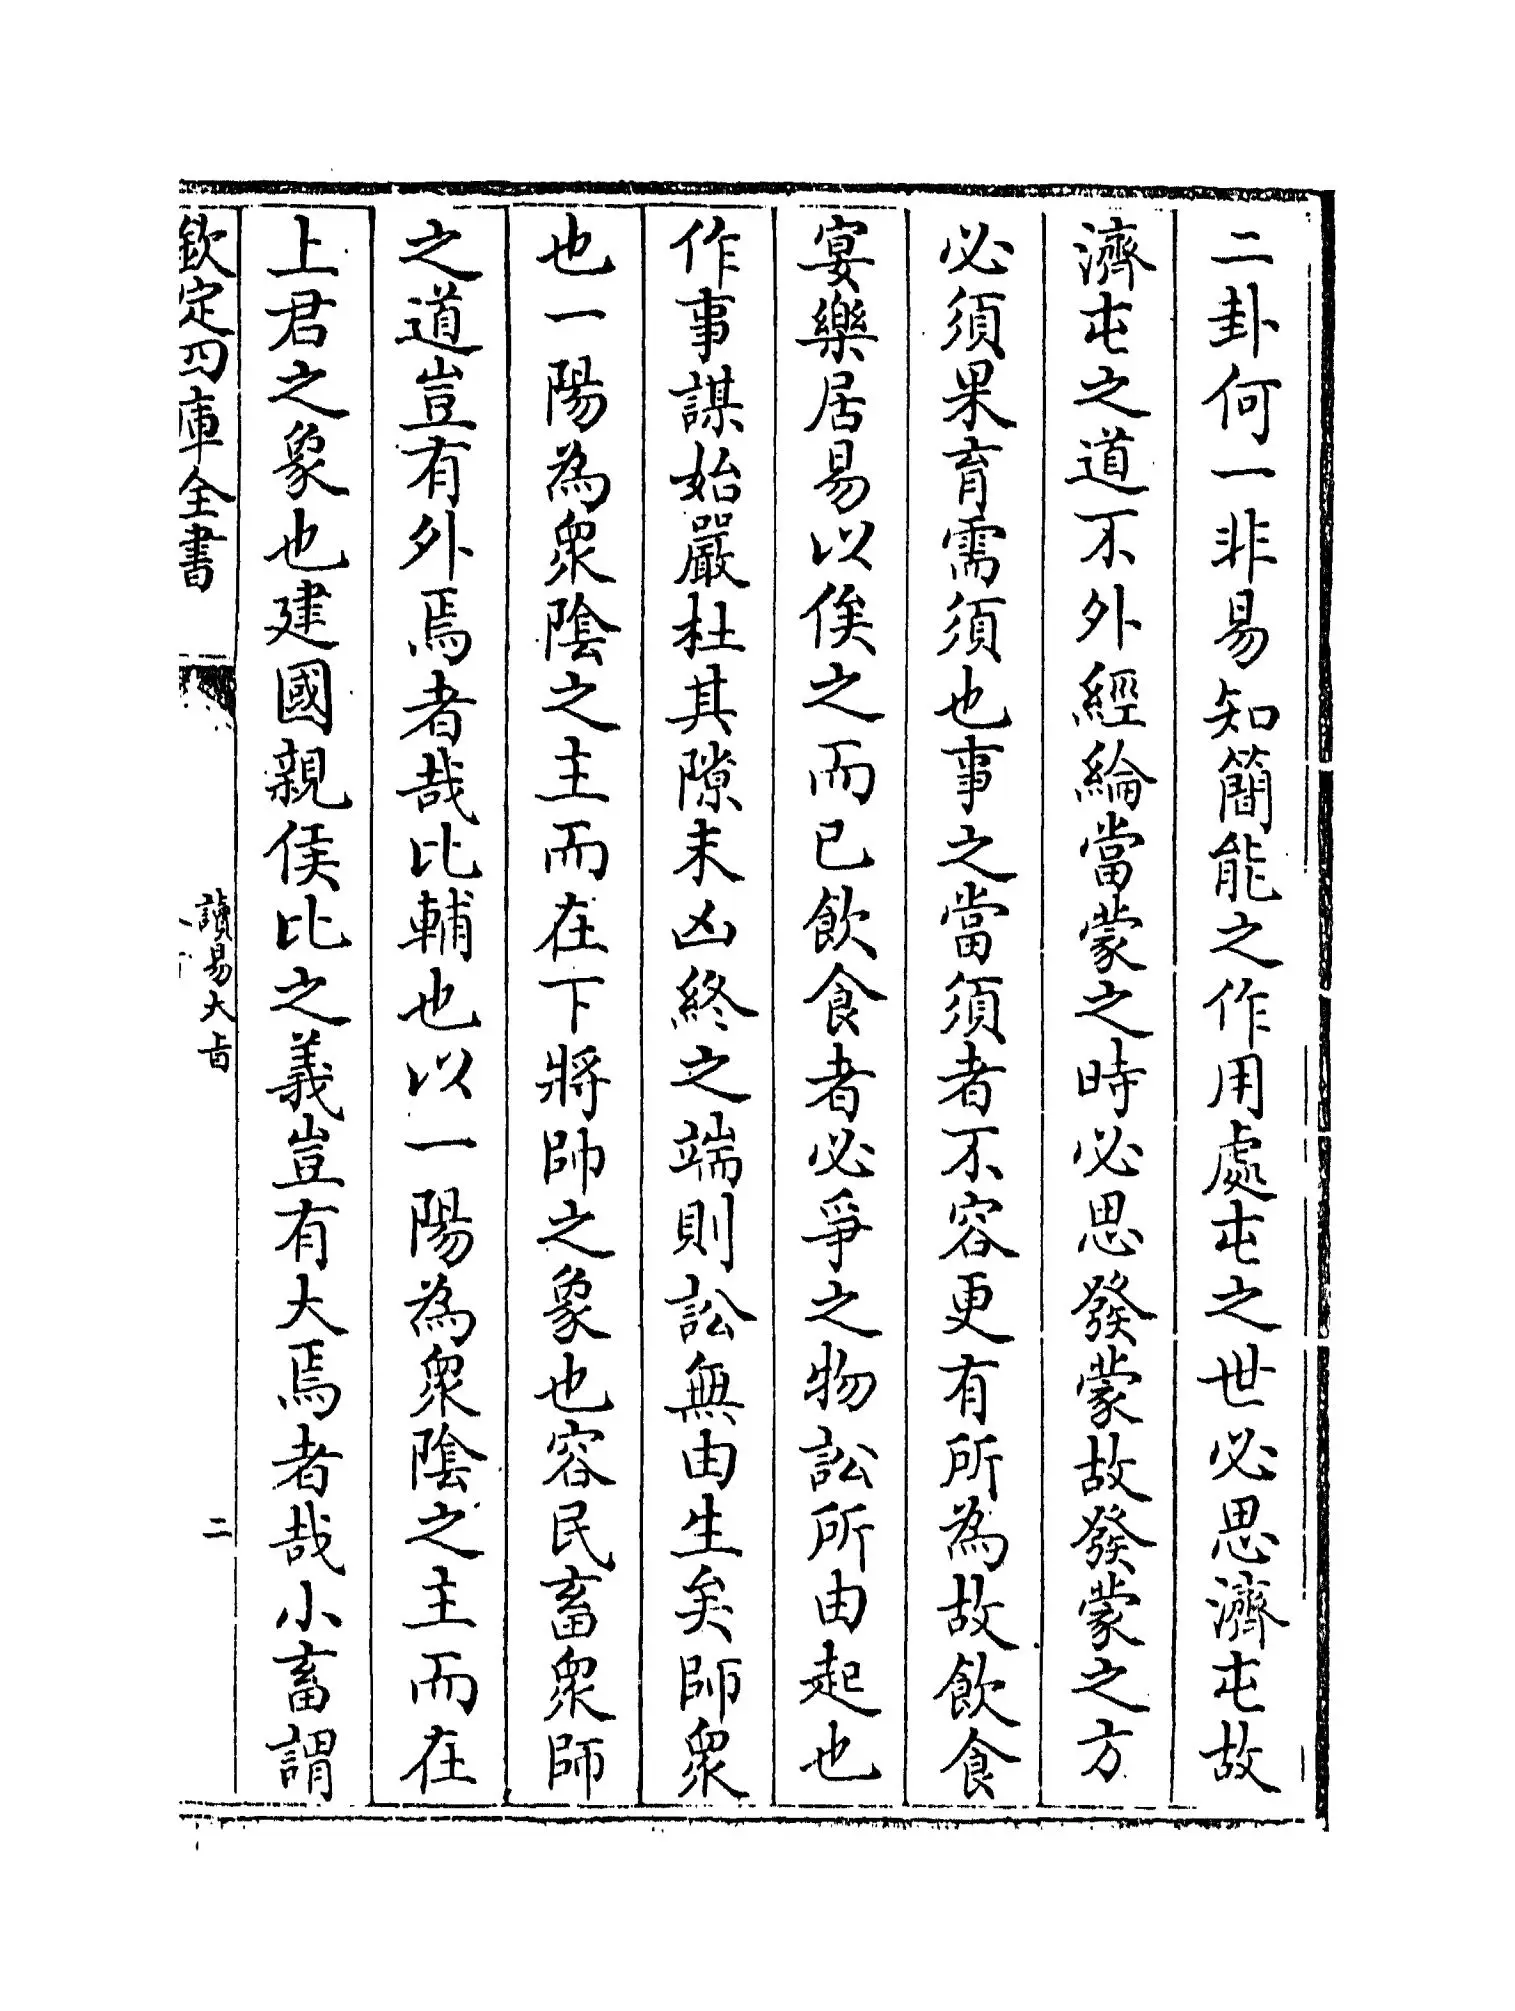 二卦何一非易知簡能之作用處屯之世必思濟屯故
濟屯之道不外經綸當蒙之時必思發蒙故發蒙之方
必須果育需須也事之當須者不容更有所為故飲食
宴樂居易以俟之而已飲食者必爭之物訟所由起也
作事謀始嚴杜其隙未凶終之端則訟無由生矣師衆
也一陽為衆陰之主而在下將帥之象也容民畜衆師
之道豈有外焉者哉比輔也以一陽為衆陰之主而在
上君之象也建國親侯比之義豈有大焉者哉小畜謂
欽定四庫全書
讀易大旨
二